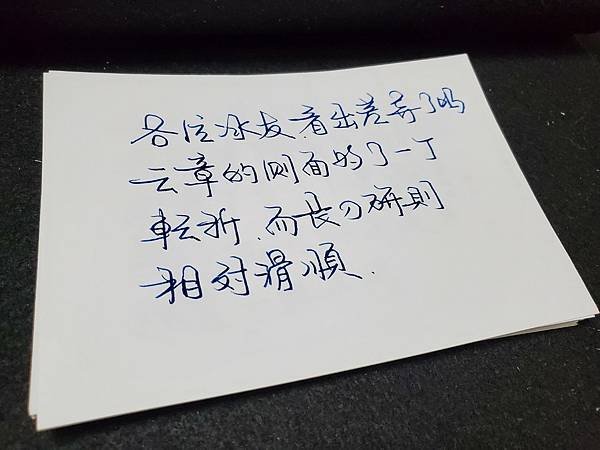 各位冰友,看出差弄了吗
云章的侧面的了一丁
転折,而長刀研則
相对滑順.